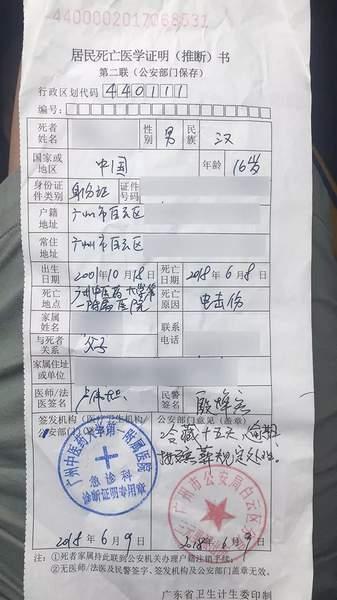 4400002017068531
居民死亡医学证明(推断)书
第二联(公安部门保存)
行政区划代码 440111
编号:
死者姓名 性别 男 民族 汉
国家或地区 中国 年龄 16岁
身份证件类别 身份证 证件号码
户籍地址 广州市白云区
常住地址 广州市白云区
出生日期 2001年10月18日 死亡日期 2018年6月8日
死亡地点 广州中医药大学第一附属医院 死亡原因 电击伤
家属姓名 联系电话
与死者关系 父子
家属住址或单位
医师/法医签名 民警签名
签发机构(医疗卫生机构/公安部门)(盖章) 公安部门意见(盖章)
冷藏十五天,逾期
按殡葬规定处理。
广州中医药大学第一附属医院
急诊科
广州市公安局白云区
2018年6月9日 2018年6月9日
注:①死者家属持此联到公安机关办理户籍注销手续;
②无医师/法医及民警签字、签发机构及公安部门盖章无效。
广东省卫生计生委印制